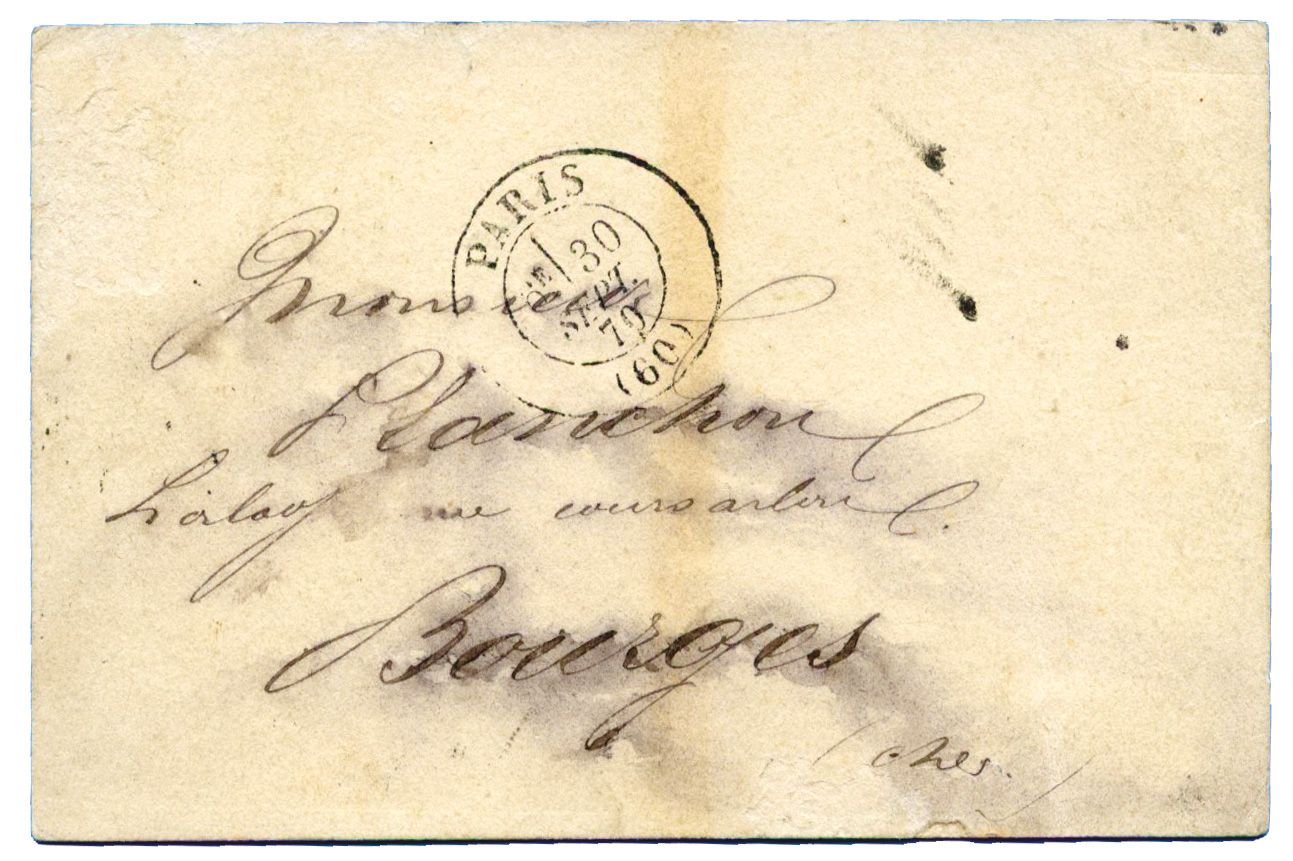 PARIS
6E
30
SEPT.
70
(60)
Monsieur
Planchon
rue coursarlon
Bourges
(cher.)